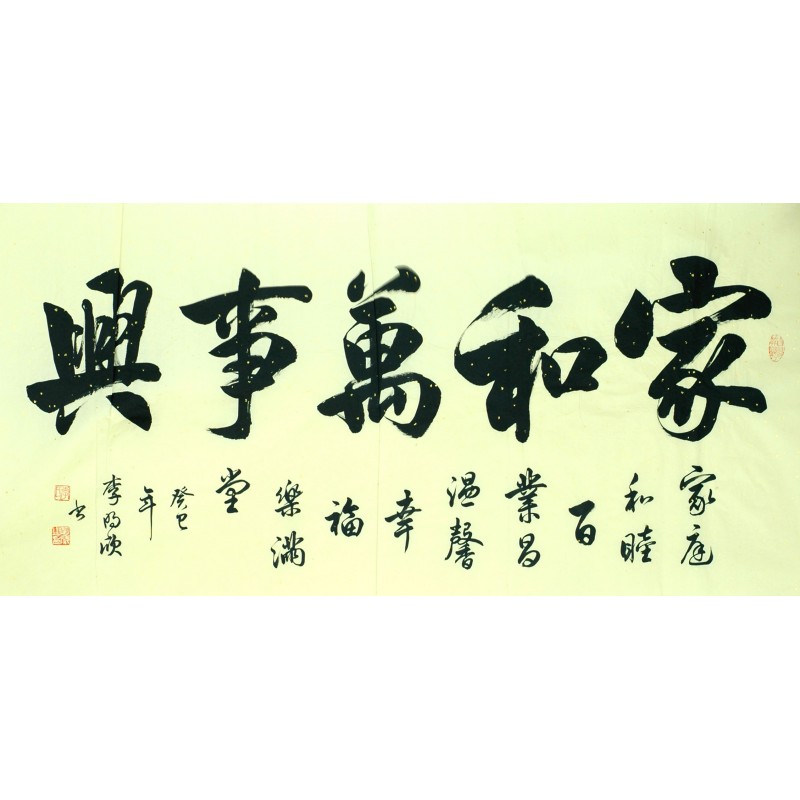 家和萬事興
家庭
和睦
百
業昌
温馨
幸
福
樂滿
堂
癸巳
年
李明
书